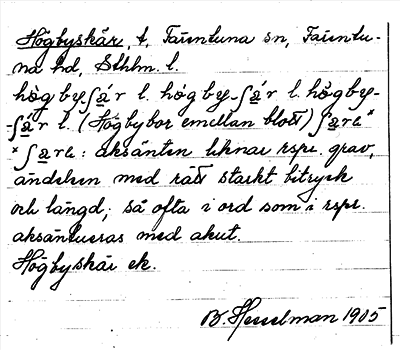 Högbyskär, t, Färentuna sn, Färentu-
na hd, Sthlm. l.
hög by-ʃä́r l. hög by-ʃä́r l. högby-
-ʃä́r l. (Högbybor emellan blott) ʃäre*
* ʃäre: aksänten liknar rspr. grav,
ändelsen med rätt starkt bitryck
och längd; så ofta i ord som i rspr.
aksäntueras med akut.
Högbyskär ek.
B. Hesselman 1905